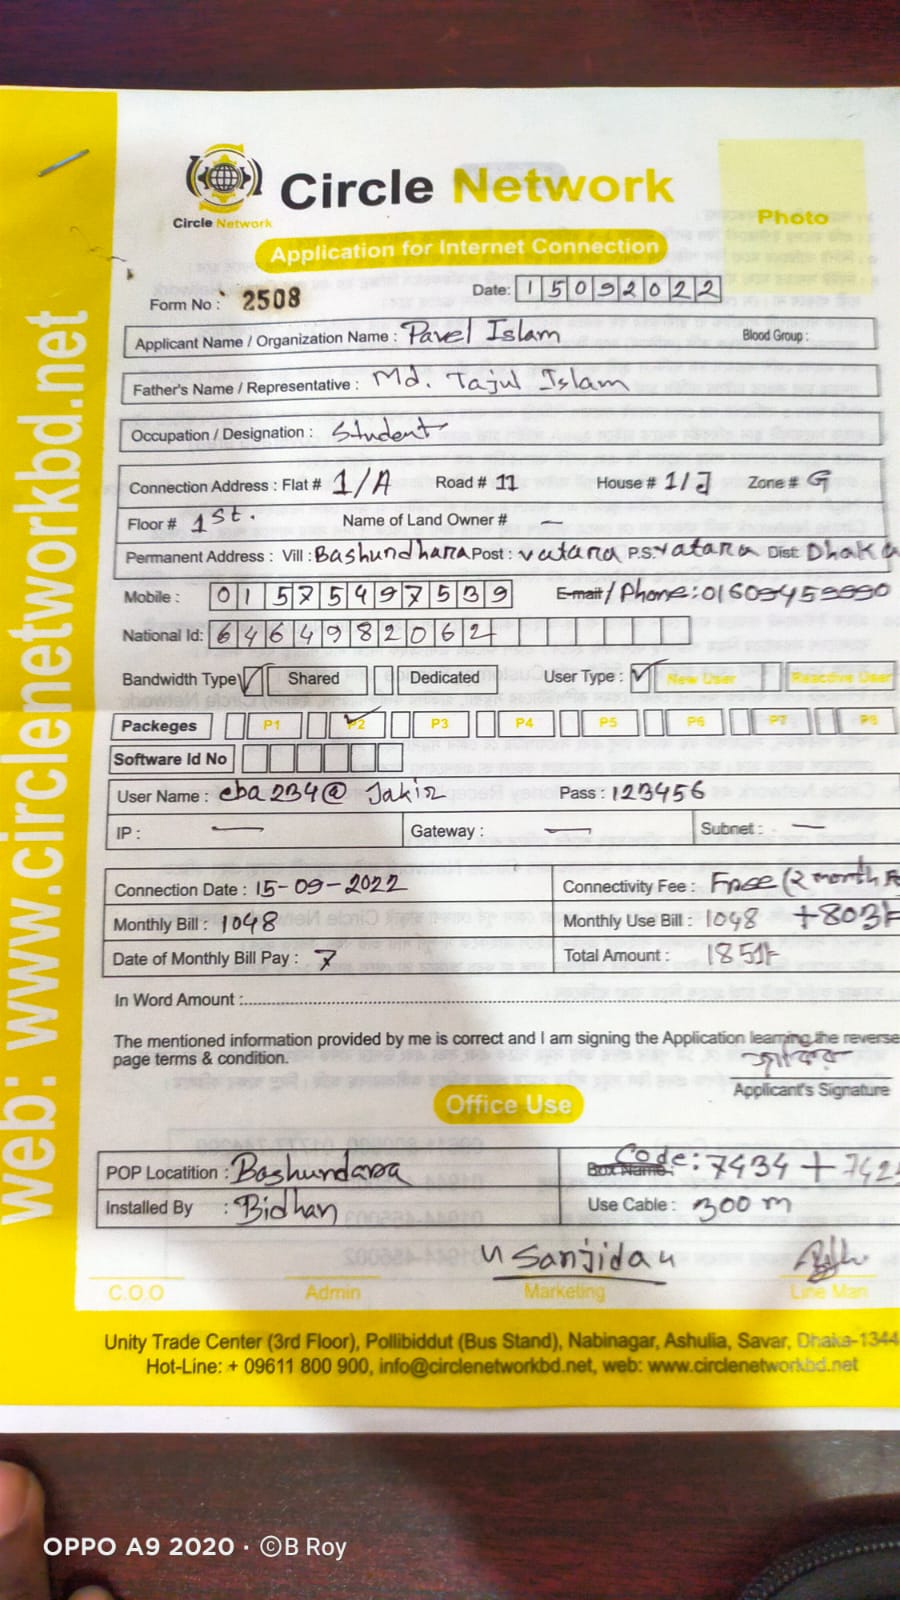 Circle Network
Circle Network
Photo
Application for Internet Connection
Form No : 2508
Date: 15092022
Applicant Name / Organization Name : Pavel Islam Blood Group :
Father's Name / Representative : Md. Tajul Islam
Occupation / Designation : Student
Connection Address : Flat # 1/A Road # 11 House # 1/J Zone # G
Floor # 1st. Name of Land Owner # —
Permanent Address : Vill : Bashundhara Post : vatara P.S: vatara Dist: Dhaka
Mobile : 01575497539 E-mait / Phone:
National Id: 6464982062
Bandwidth Type Shared Dedicated User Type : New User Reactive User
Packeges P1 P2 P3 P4 P5 P6 P7 P8
Software Id No
User Name : cba234@ Jakir Pass : 123456
IP : — Gateway : — Subnet : —
Connection Date : 15-09-2022 Connectivity Fee : Free (2 month
Monthly Bill : 1048 Monthly Use Bill : 1048 +803/-
Date of Monthly Bill Pay : 7 Total Amount : 1851/-
In Word Amount :
The mentioned information provided by me is correct and I am signing the Application learning the reverse
page terms & condition.
Applicant's Signature
Office Use
POP Locatition : Bashundara Box Name: Code: 7434 +
Installed By : Bidhan Use Cable : 300 m
Sanjida
C.O.O Admin Marketing Line Man
Unity Trade Center (3rd Floor), Pollibiddut (Bus Stand), Nabinagar, Ashulia, Savar, Dhaka-1344
Hot-Line: + 09611 800 900, info@circlenetworkbd.net, web: www.circlenetworkbd.net
web: www.circlenetworkbd.net
OPPO A9 2020 · ©B Roy